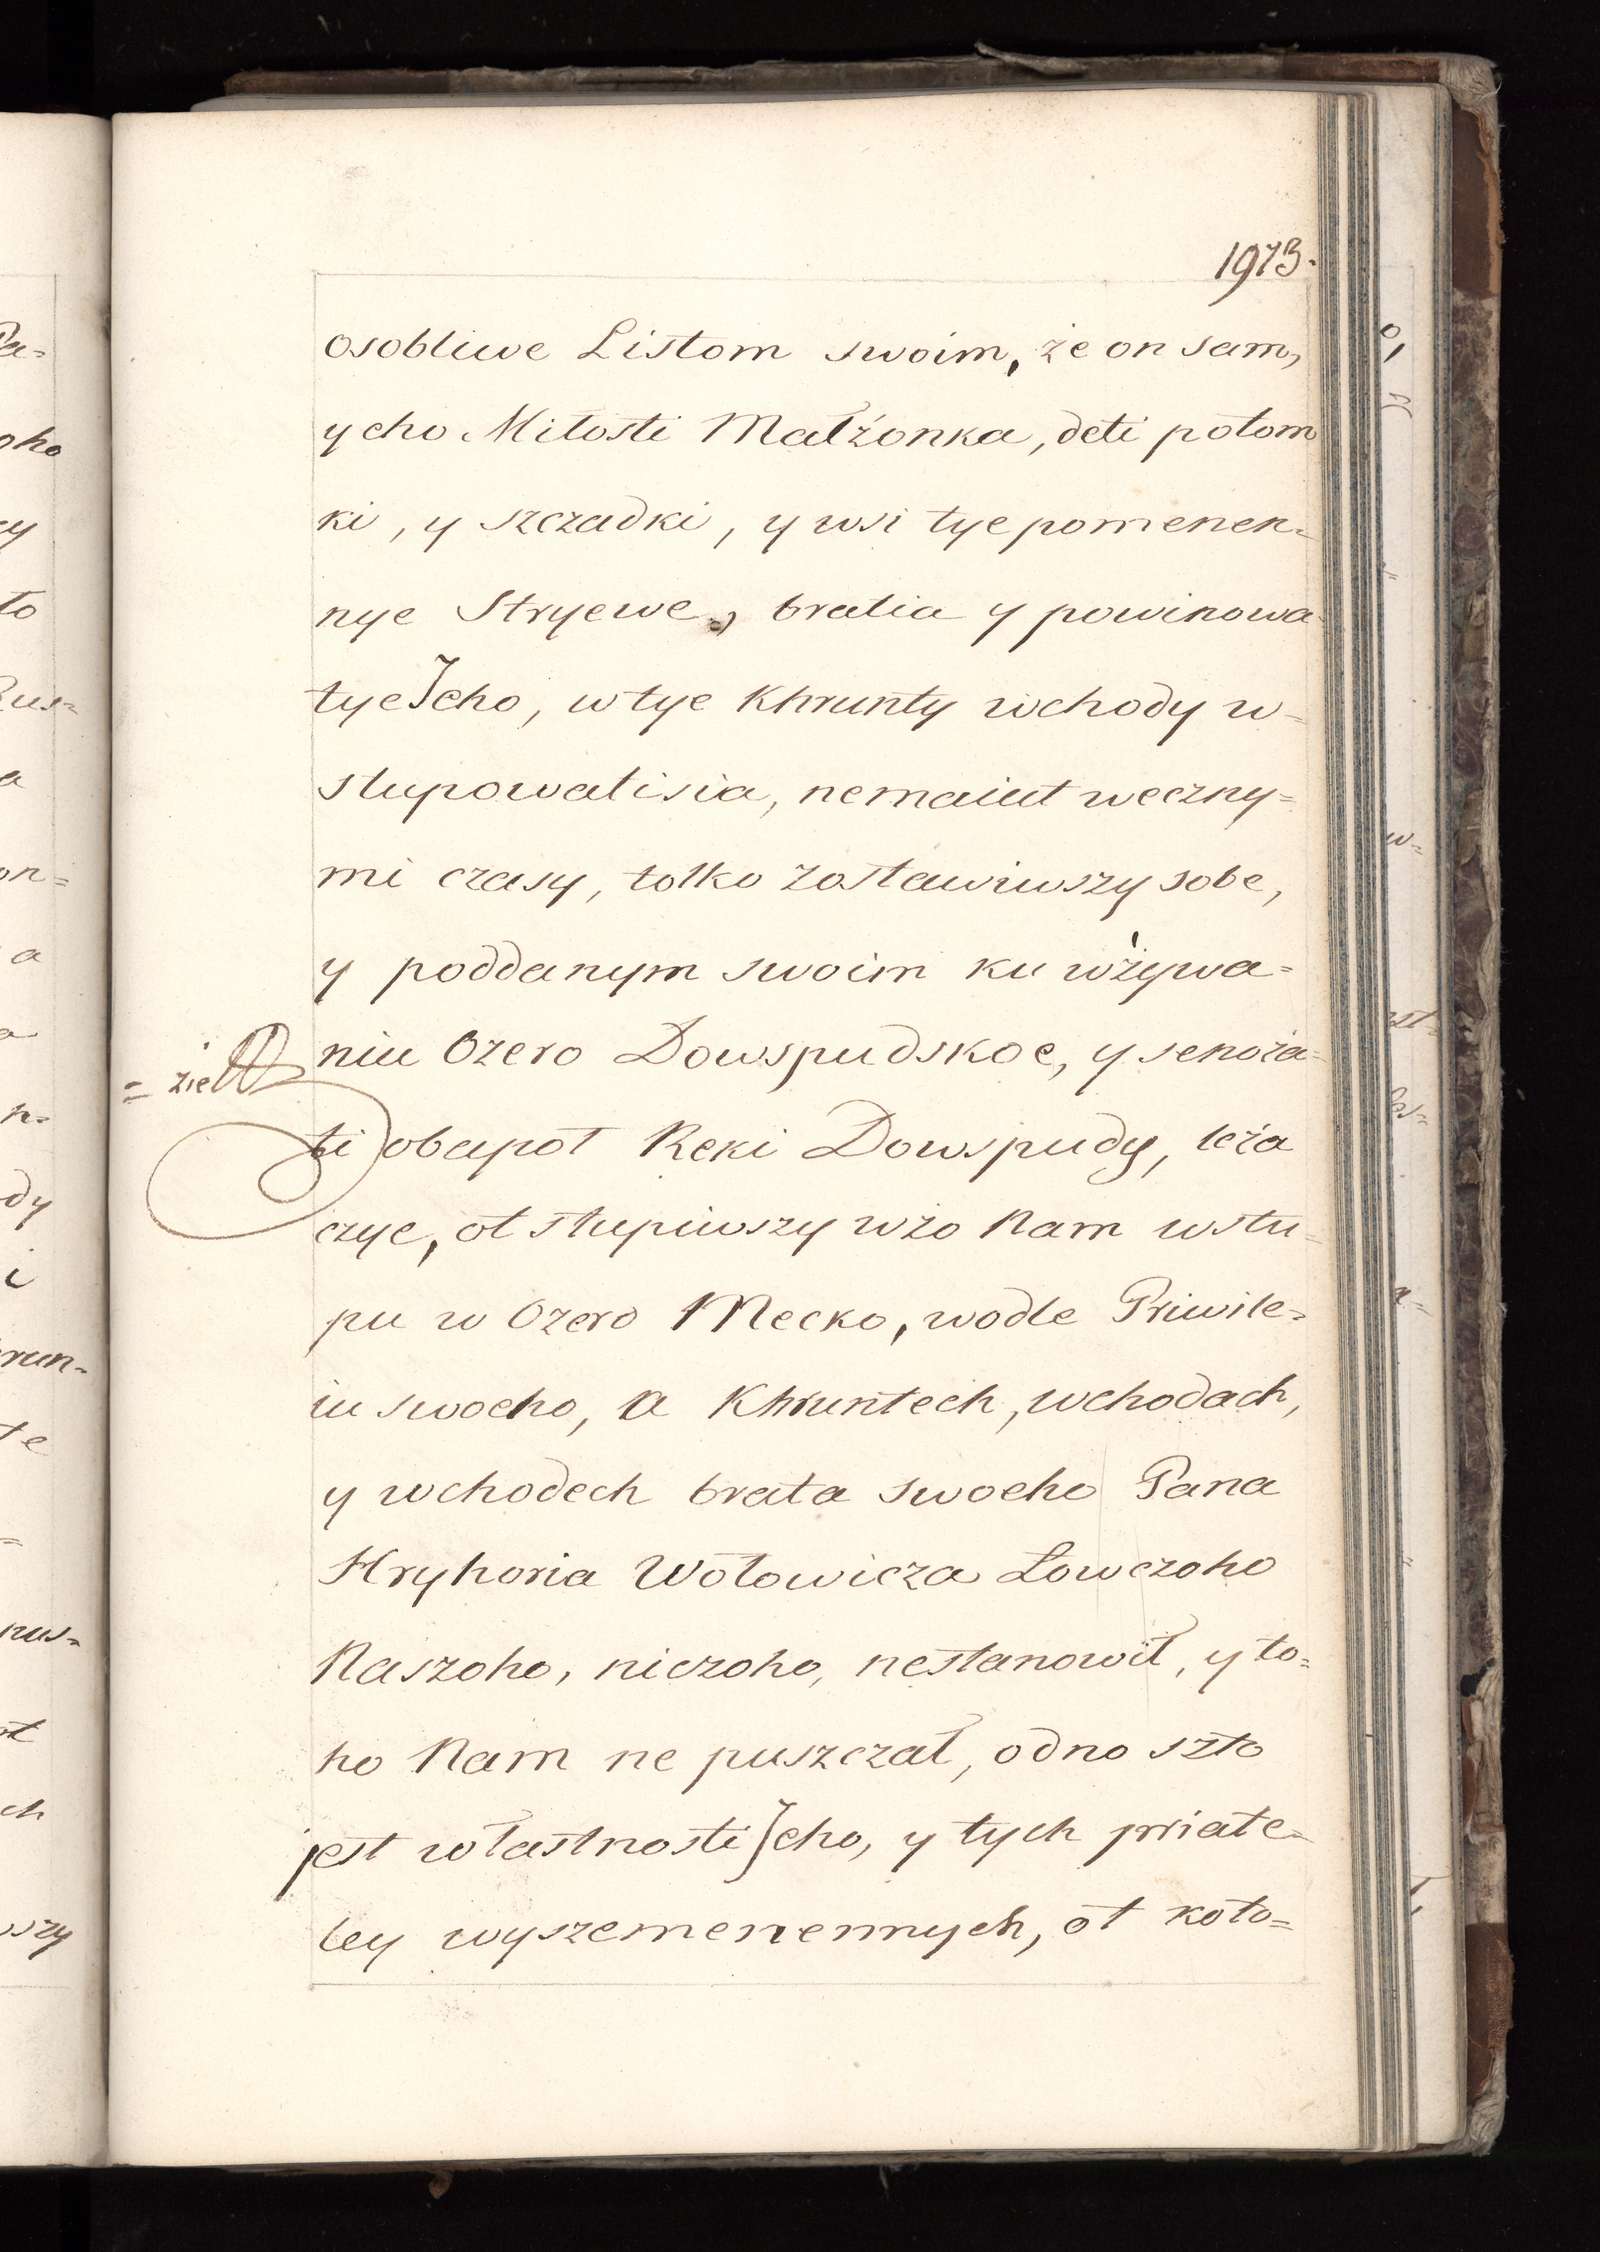 1973.
osobliwe Listom swoim, że on sam,
y eho Miłosti Małżonka, deti potom
ki, y szczadki, y wsi tye pomenen=
nye Stryewe, bratia y powinowa=
tye Jeho, w tye Khrunty wchody w=
stupowatisia, nemaiut weczny=
mi czasy, tolko zostawiwszy sobe,
y poddanym swoim ku wżywa=
niu Ozero Dowspudskoe, y senoża=
= zie
ti obapoł Reki Dowspudy, leża
czye, ot stupiwszy wżo Nam wstu=
pu w Ozero Mecko, wodle Priwile=
iu swoeho, a Khruntech, wchodach,
y wchodech brata swoeho Pana
Hryhoria Wołowicza Łowczoho
Naszoho, niczoho, nestanowił, y to=
ho Nam ne puszczał, odno szto
jest własnosti Jeho, y tych priate=
ley wyszemenennych, ot koto=